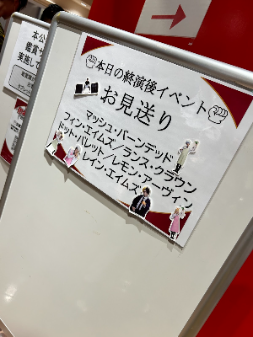 本日の終演後イベント
お見送り
マッシュ・バーンデッド
フィン・エイムズ/ランス・クラウン
ドット・バレット/レモン・アーヴィン
レイン・エイムズ